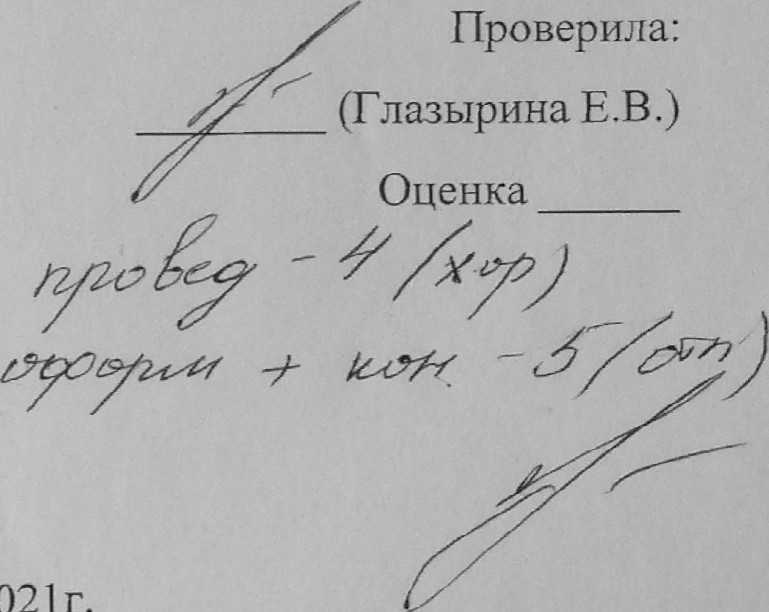 Проверила:
(Глазырина Е.В.)
Оценка
провед - 4 (хор)
оформ + кон. - 5 (отл)
021г.